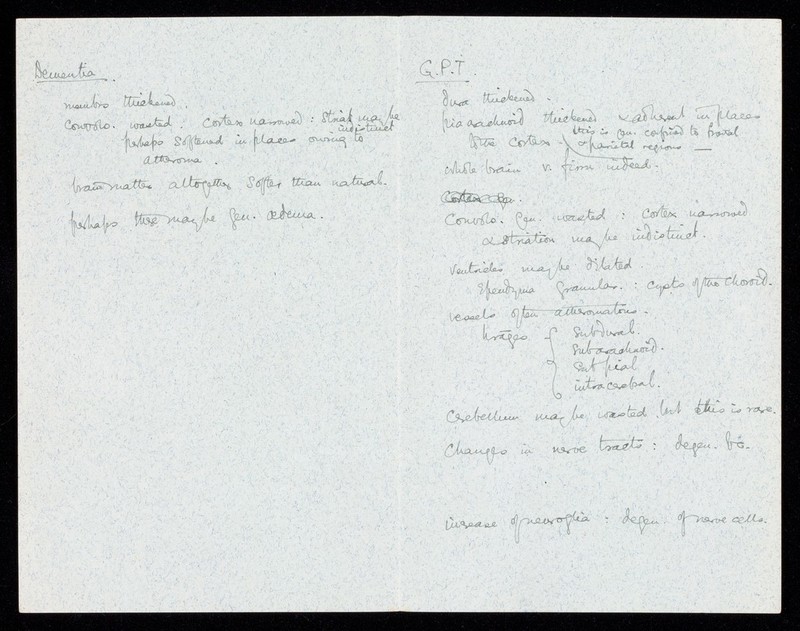 Dementia.
membrs thickened.
Convols. wasted. Cortex narrowed : striae may be
indistinct
perhaps softened in places owing to
atheroma.
brain matter altogether softer than natural.
perhaps there may be gen. œdema.
G.P.I
dura thickened.
pia arachnoid thickened & adherent in places
to the cortex. this is gen. confined to frontal
& parietal regions —
whole brain v. firm indeed.
Cortex gen.
Convols. gen. wasted : cortex narrowed
& striation may be indistinct.
Ventricles may be dilated.
Ependyma granular. : cysts of the choroid.
vessels often atheromatous.
hrages { subdural.
subarachnoid.
sub pial
intracerebral.
Cerebellum may be wasted but this is rare.
Changes in nerve tracts : degen.
increase of neuroglia : degen. of nerve cells.